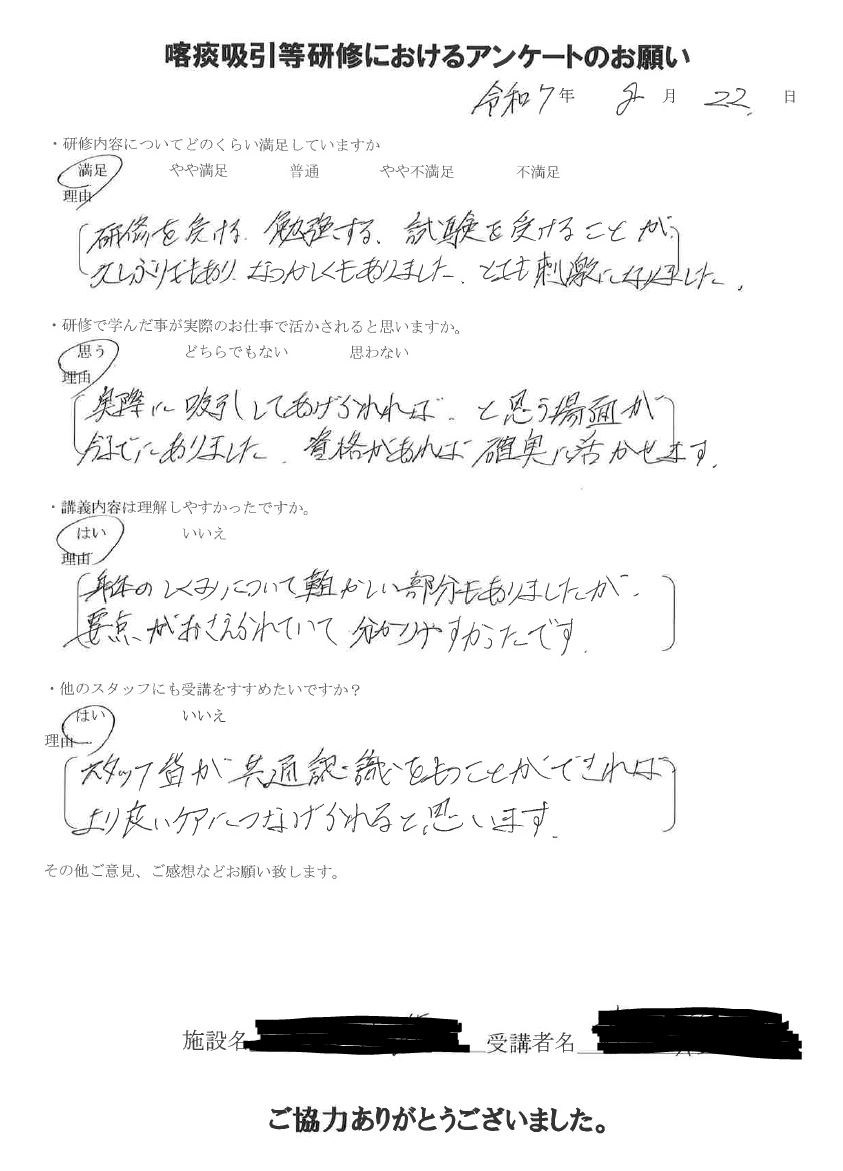 喀痰吸引等研修におけるアンケートのお願い
令和7年 2月 22日
・研修内容についてどのくらい満足していますか
満足 やや満足 普通 やや不満足 不満足
理由
研修を受ける、勉強する、試験を受けることが、
久しぶりでもあり、なつかしくもありました。とても刺激になりました。
・研修で学んだ事が実際のお仕事で活かされると思いますか。
思う どちらでもない 思わない
理由
実際に吸引してあげられれば、と思う場面が
今までにありました。資格があれば確実に活かせます。
・講義内容は理解しやすかったですか。
はい いいえ
理由
身体のしくみについて難かしい部分もありましたが、
要点がおさえられていて分かりやすかったです。
・他のスタッフにも受講をすすめたいですか？
はい いいえ
理由
スタッフ皆が共通認識をもつことができれば
より良いケアにつなげられると思います。
その他ご意見、ご感想などお願い致します。
施設名 受講者名
ご協力ありがとうございました。